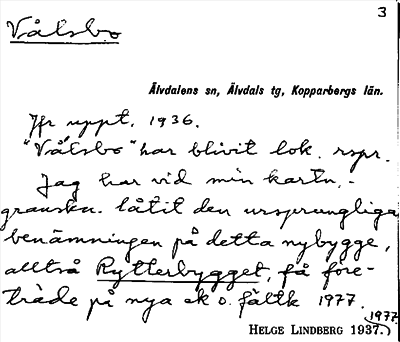 3
Vålsbo
Älvdalens sn, Älvdals tg, Kopparbergs län.
Jfr uppt. 1936.
"Vålsbo" har blivit lok. rspr.
Jag har vid min kartn.-
granskn. låtit den ursprungliga
benämningen på detta nybygge,
alltså Rytterbygget, få före-
träde på nya ek o. fältk 1977.
1977
HELGE LINDBERG 1937.)